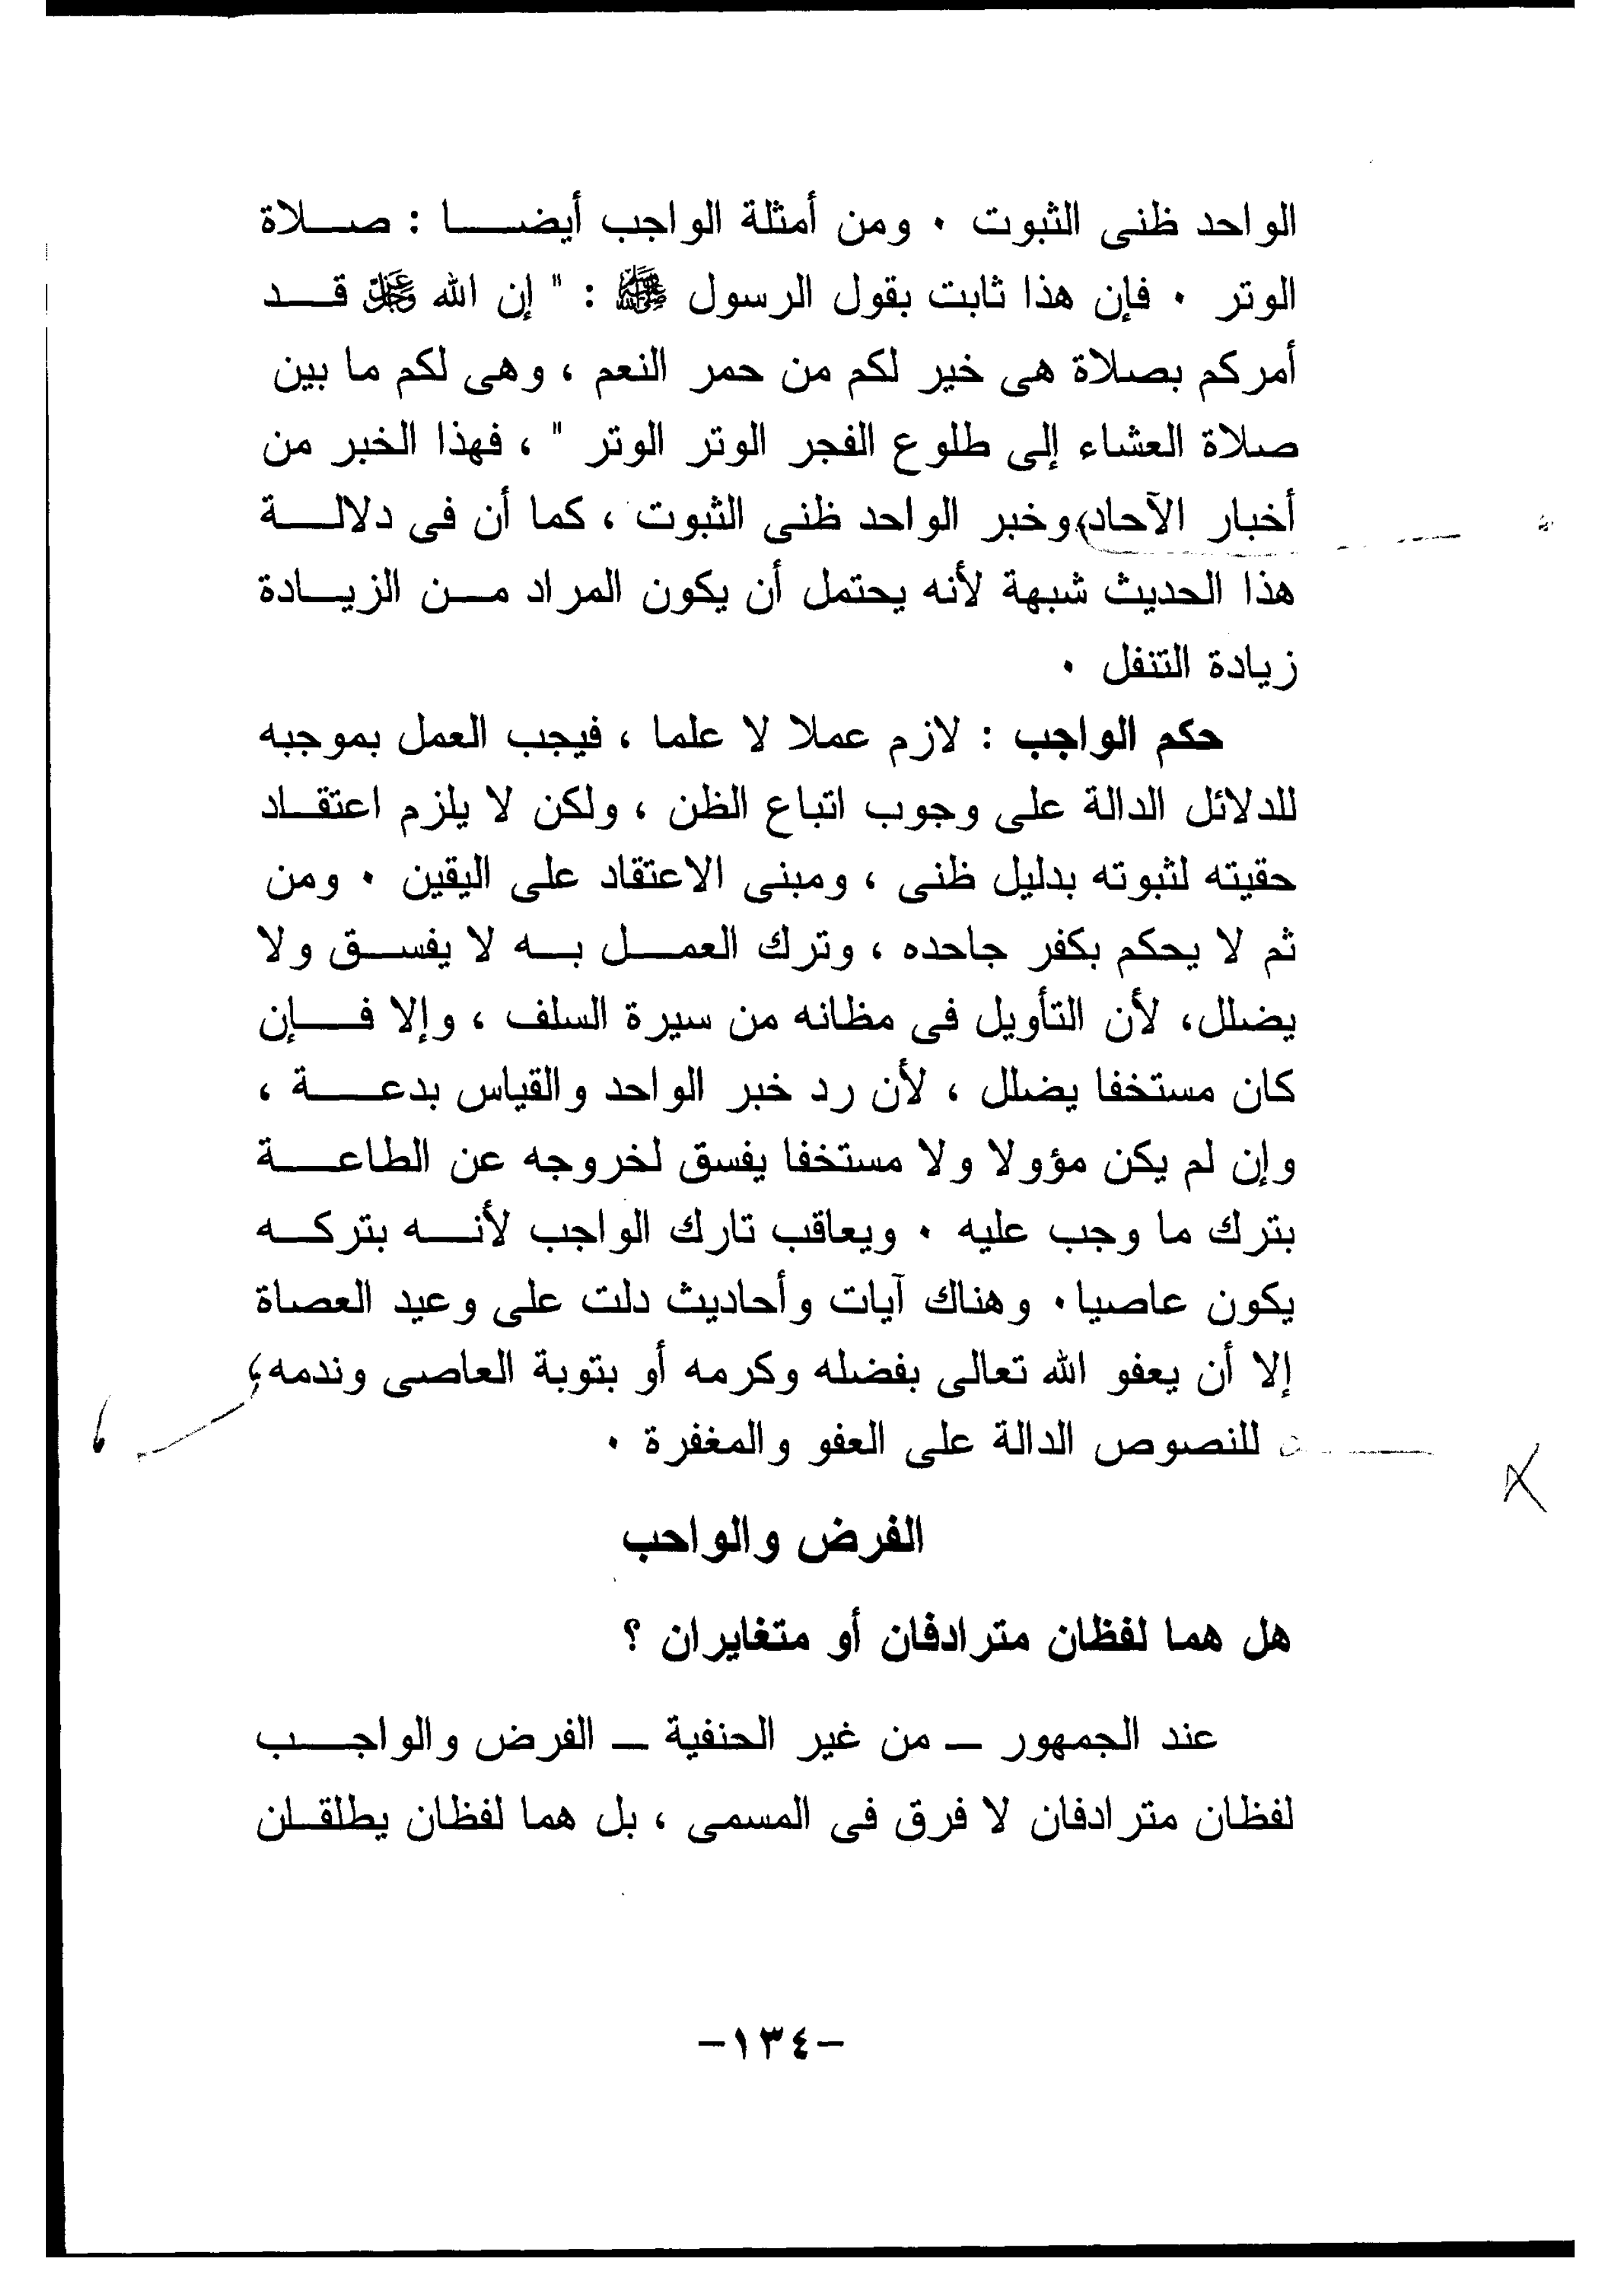 الواحد ظنى الثبوت ٠ ومن أمثلة الواجب أيضا : صلاة
الوتر ٠ فإن هذا ثابت بقول الرسول ﷺ : " إن الله عز وجل قد
أمركم بصلاة هى خير لكم من حمر النعم ، وهى لكم ما بين
صلاة العشاء إلى طلوع الفجر الوتر الوتر " ، فهذا الخبر من
أخبار الآحاد، وخبر الواحد ظنى الثبوت ، كما أن فى دلالة
هذا الحديث شبهة لأنه يحتمل أن يكون المراد من الزيادة
زيادة التنفل ٠
حكم الواجب : لازم عملا لا علما ، فيجب العمل بموجبه
للدلائل الدالة على وجوب اتباع الظن ، ولكن لا يلزم اعتقاد
حقيته لثبوته بدليل ظنى ، ومبنى الاعتقاد على اليقين ٠ ومن
ثم لا يحكم بكفر جاحده ، وترك العمل به لا يفسق ولا
يضلل، لأن التأويل فى مظانه من سيرة السلف ، وإلا فإن
كان مستخفا يضلل ، لأن رد خبر الواحد والقياس بدعة ،
وإن لم يكن مؤولا ولا مستخفا يفسق لخروجه عن الطاعة
بترك ما وجب عليه ٠ ويعاقب تارك الواجب لأنه بتركه
يكون عاصيا٠ وهناك آيات وأحاديث دلت على وعيد العصاة
إلا أن يعفو الله تعالى بفضله وكرمه أو بتوبة العاصى وندمه،
للنصوص الدالة على العفو والمغفرة ٠
الفرض والواحب
هل هما لفظان مترادفان أو متغايران ؟
عند الجمهور – من غير الحنفية – الفرض والواجب
لفظان مترادفان لا فرق فى المسمى ، بل هما لفظان يطلقلن
-١٣٤-